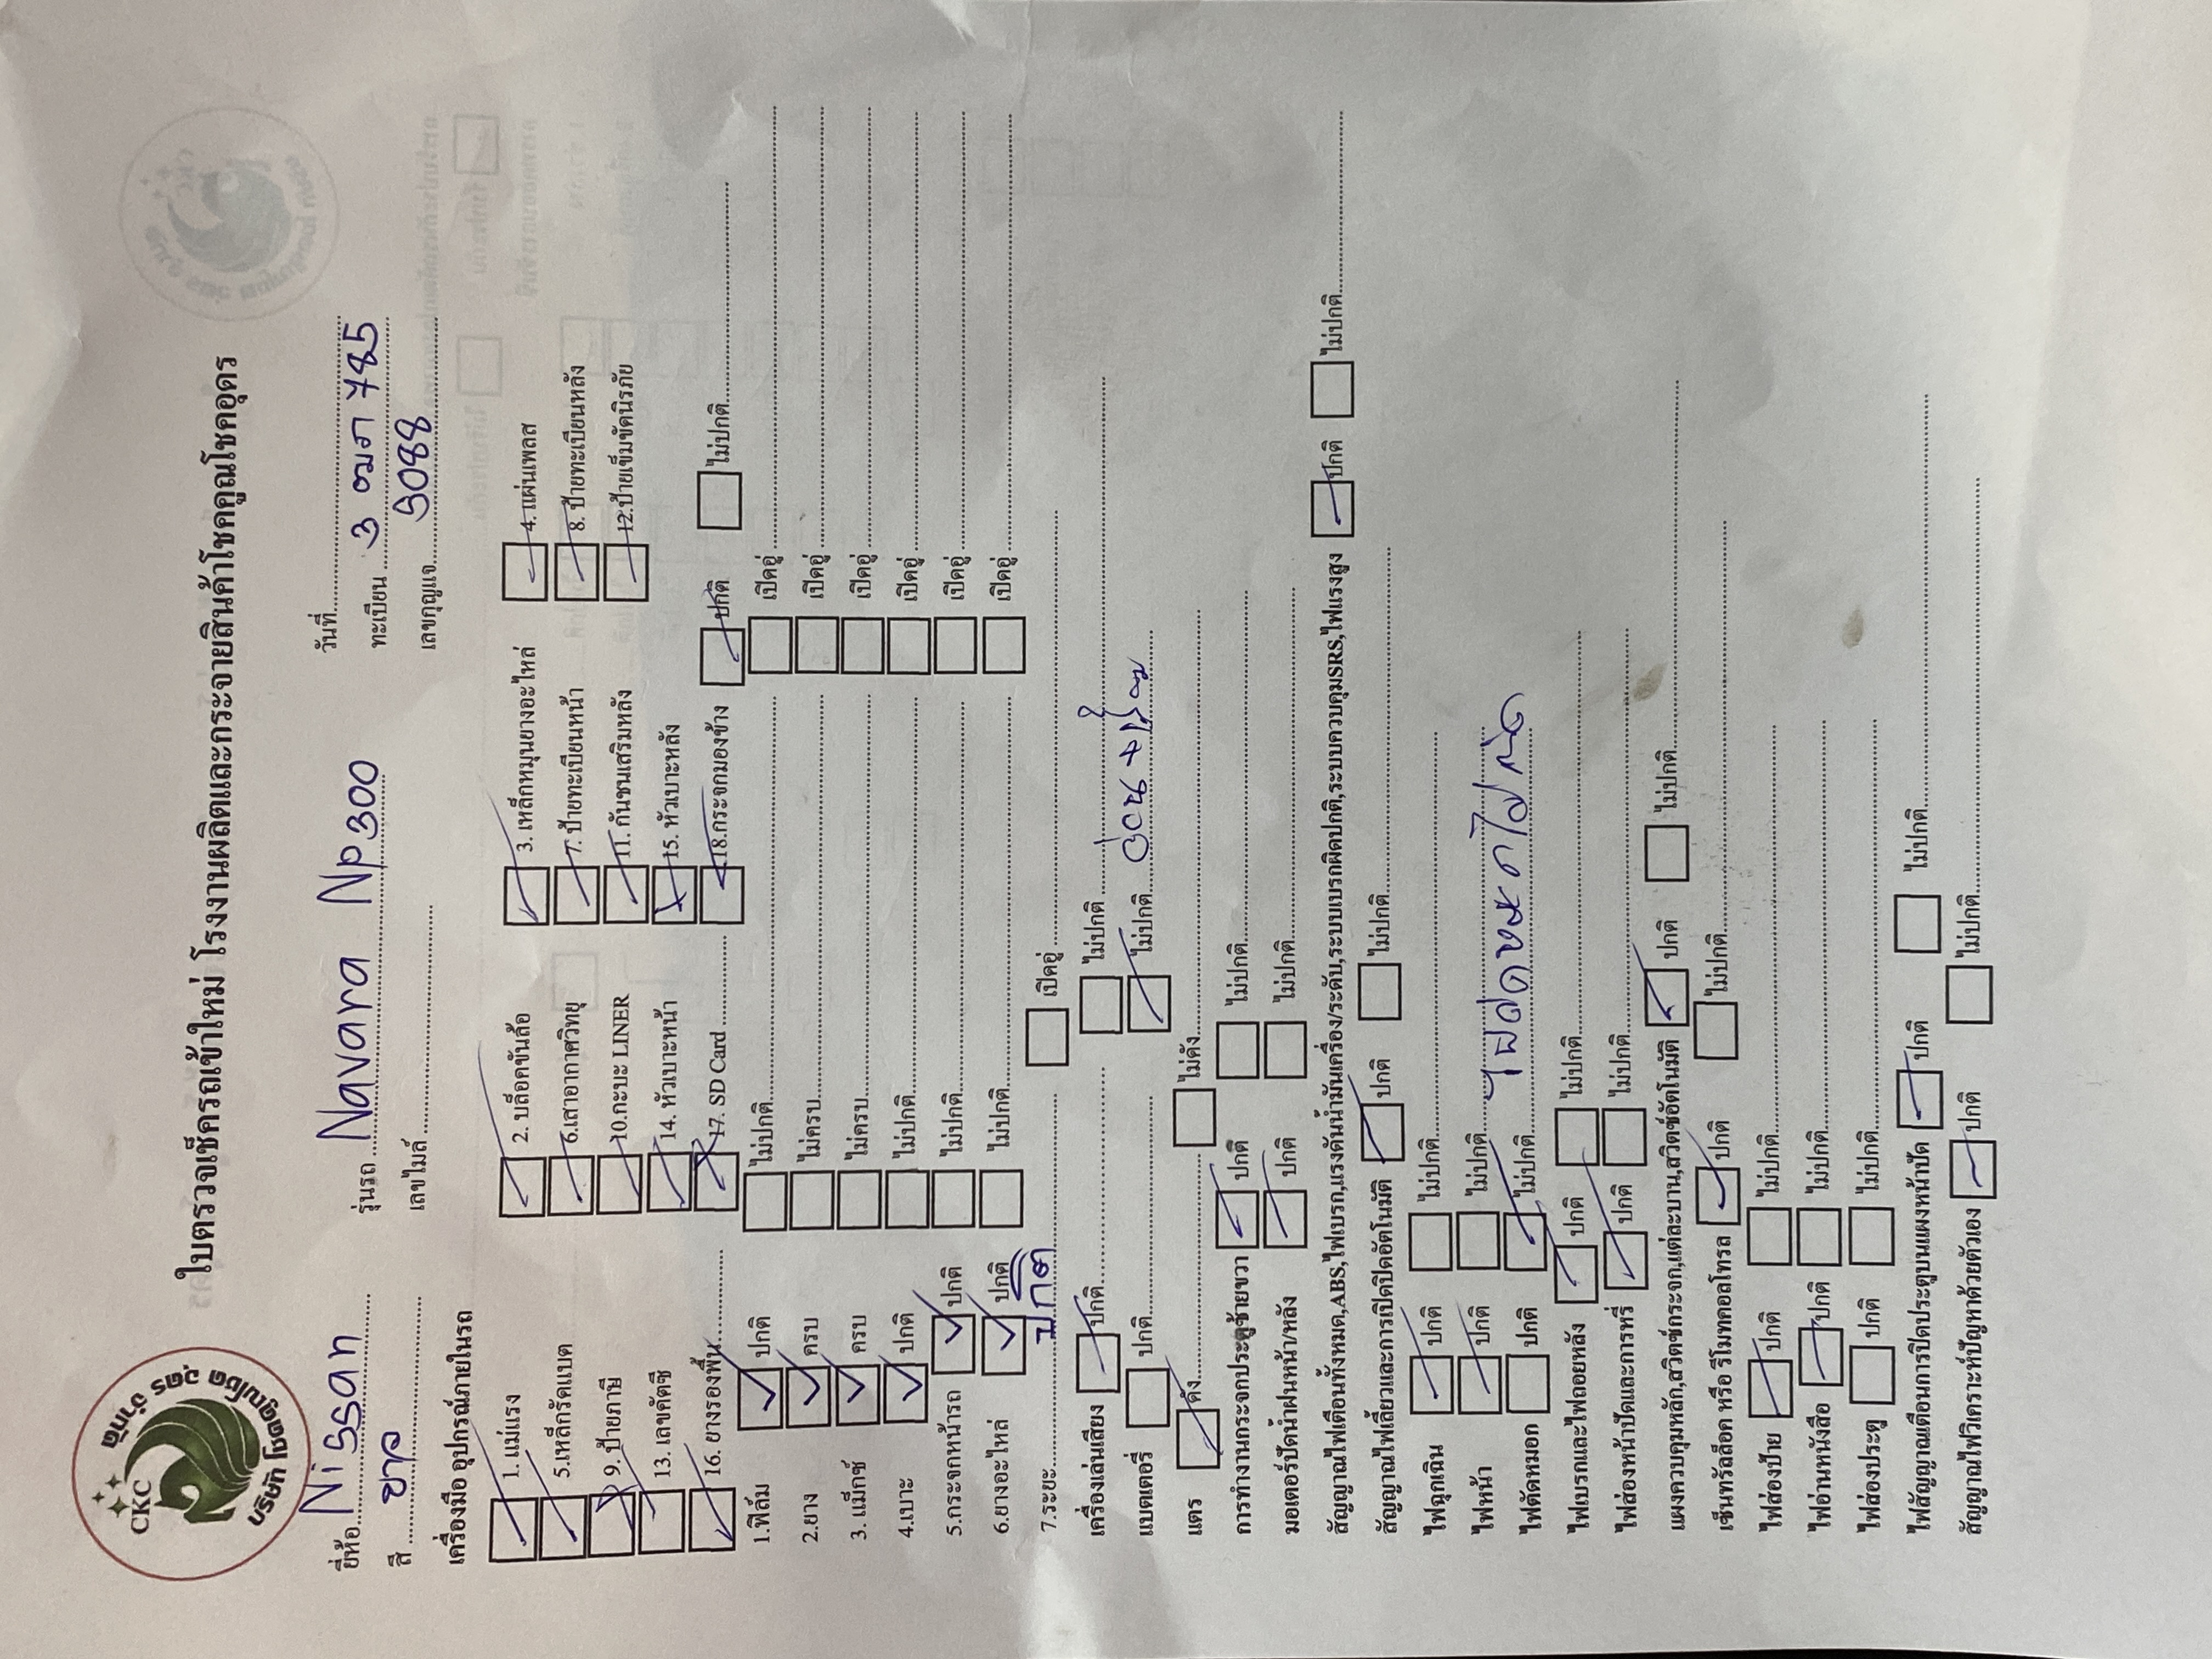 บริษัท โชคคูณโชค อุดร จำกัด
CKC
ใบตรวจเช็ครถเข้าใหม่ โรงงานผลิตและกระจายสินค้าโชคคูณโชคอุดร
วันที่
ยี่ห้อ Nissan รุ่นรถ Navara Np300 ทะเบียน 3 ฒภ 785
สี ขาว เลขไมล์ เลขกุญแจ 9088
เครื่องมือ อุปกรณ์ภายในรถ
1. แม่แรง 2. บล็อคขันล้อ 3. เหล็กหมุนยางอะไหล่ 4. แผ่นเพลส
5.เหล็กกรัดแบต 6.เสาอากาศวิทยุ 7. ป้ายทะเบียนหน้า 8. ป้ายทะเบียนหลัง
9. ป้ายภาษี 10.กะบะ LINER 11. กันชนเสริมหลัง 12.ป้ายเข็มขัดนิรภัย
13. เลขคัตซี 14. หัวเบาะหน้า 15. หัวเบาะหลัง
16. ยางรองพื้น 17. SD Card 18.กระจกมองข้าง ปกติ ไม่ปกติ
1.ฟิล์ม ปกติ ไม่ปกติ เปิดอู่
2.ยาง ครบ ไม่ครบ เปิดอู่
3. แม็กซ์ ครบ ไม่ครบ เปิดอู่
4.เบาะ ปกติ ไม่ปกติ เปิดอู่
5.กระจกหน้ารถ ปกติ ไม่ปกติ เปิดอู่
6.ยางอะไหล่ ปกติ ไม่ปกติ เปิดอู่
7.ระยะ ปกติ เปิดอู่
เครื่องเล่นเสียง ปกติ ไม่ปกติ
แบตเตอรี่ ปกติ ไม่ปกติ
แตร ดัง ไม่ดัง
การทำงานกระจกประตูซ้ายขวา ปกติ ไม่ปกติ
มอเตอร์ปัดน้ำฝนหน้า/หลัง ปกติ ไม่ปกติ
สัญญาณไฟเตือนทั้งหมด,ABS,ไฟเบรก,แรงดันน้ำมันเครื่อง/ระดับ,ระบบเบรกผิดปกติ,ระบบควบคุมSRS,ไฟแรงสูง ปกติ ไม่ปกติ
สัญญาณไฟเลี้ยวและการเปิดปิดอัตโนมัติ ปกติ ไม่ปกติ
ไฟฉุกเฉิน ปกติ ไม่ปกติ
ไฟหน้า ปกติ ไม่ปกติ
ไฟตัดหมอก ปกติ ไม่ปกติ
ไฟเบรกและไฟถอยหลัง ปกติ ไม่ปกติ
ไฟส่องหน้าปัดและการหรี่ ปกติ ไม่ปกติ
แผงควบคุมหลัก,สวิตซ์กระจก,แต่ละบาน,สวิตซ์อัตโนมัติ ปกติ ไม่ปกติ
เซ็นทรัลล็อค หรือ รีโมทคอลโทรล ปกติ ไม่ปกติ
ไฟส่องป้าย ปกติ ไม่ปกติ
ไฟอ่านหนังสือ ปกติ ไม่ปกติ
ไฟส่องประตู ปกติ ไม่ปกติ
ไฟสัญญาณเตือนการปิดประตูบนแผงหน้าปัด ปกติ ไม่ปกติ
สัญญาณไฟวิเคราะห์ปัญหาด้วยตัวเอง ปกติ ไม่ปกติ